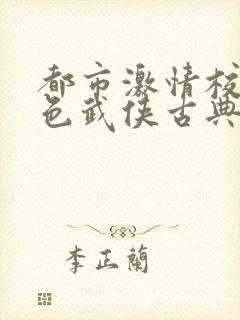 都市激情校
色武侠古典
李正蘭